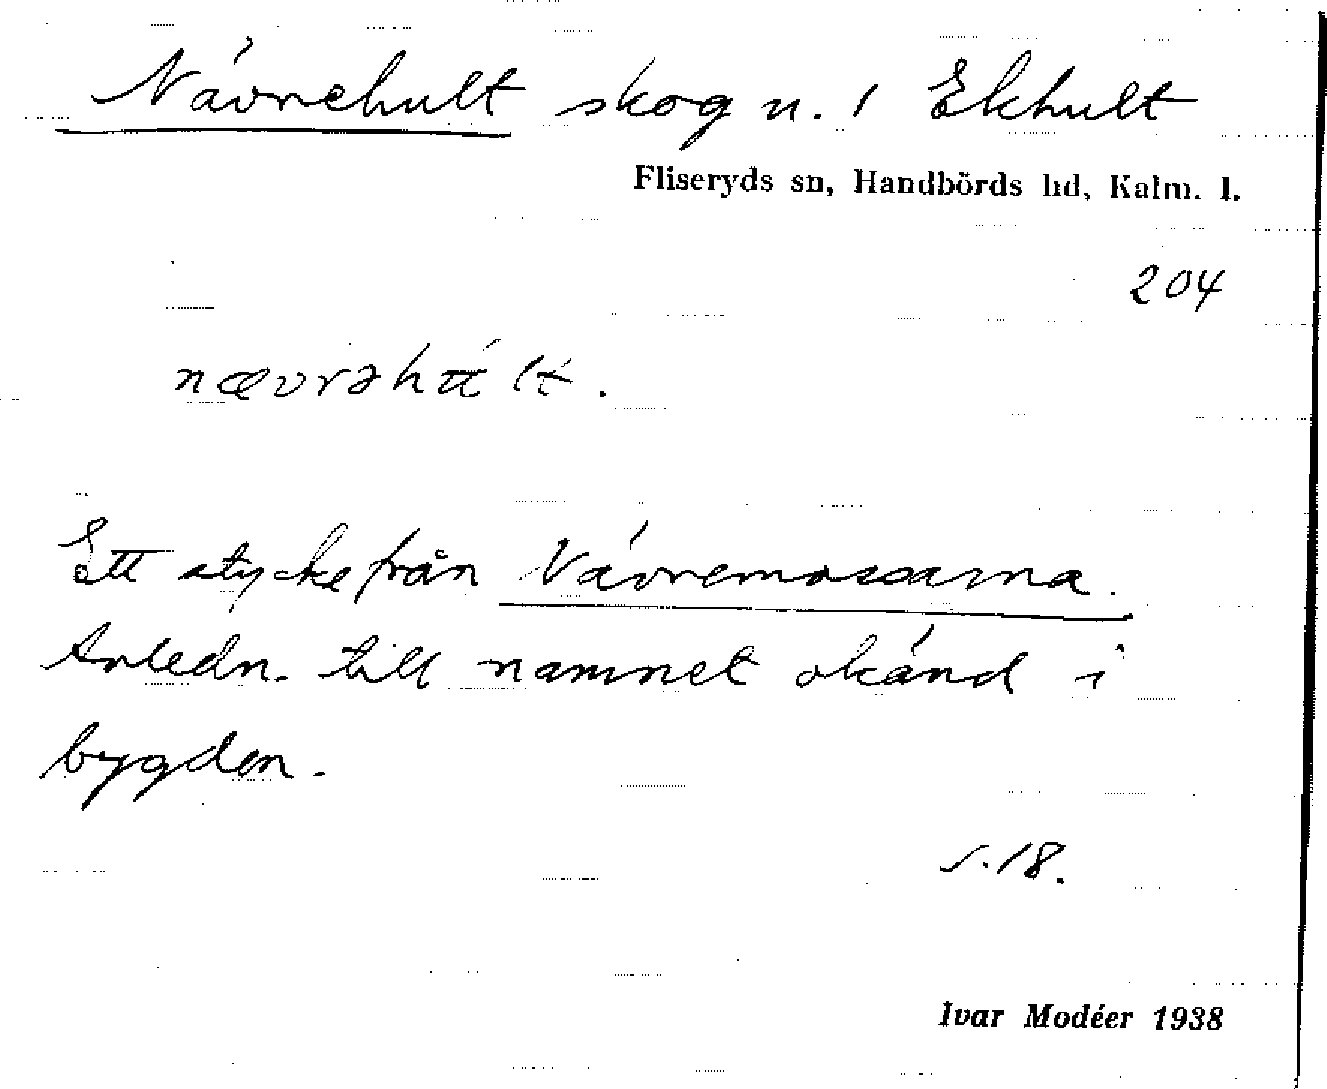 Nävrehult skog n. 1 Ekhult
Fliseryds sn, Handbörds hd, Kalm. l.
204
nævrəhúlt.
Ett stycke från Nävremossarna.
Anledn. till namnet okänd i
bygden.
s. 18.
Ivar Modéer 1938